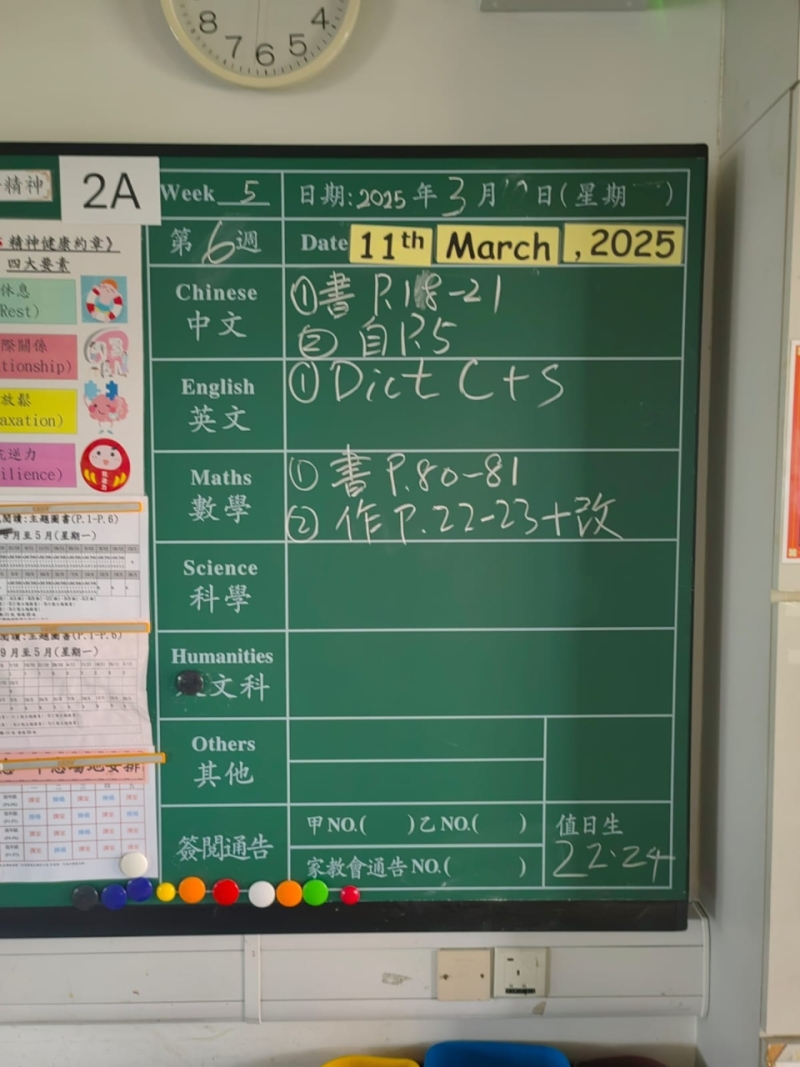 8 7 6 5 4
精神
2A
Week 5
日期:2025年3月 日(星期 )
第6週
Date 11th March , 2025
精神健康約章》
四大要素
休息
Rest)
際關係
tionship)
放鬆
axation)
逆力
ilience)
Chinese
中文
①書 P.18-21
② 自 P.5
English
英文
① Dict C+S
Maths
數學
① 書 P.80-81
② 作 P.22-23+改
Science
科學
Humanities
文科
Others
其他
簽閱通告
甲NO.( )乙NO.( )
家教會通告NO.( )
值日生
22·24
閱讀:主題圖書(P.1-P.6)
月至5月(星期一)
閱讀:主題圖書(P.1-P.6)
9月至5月(星期一)